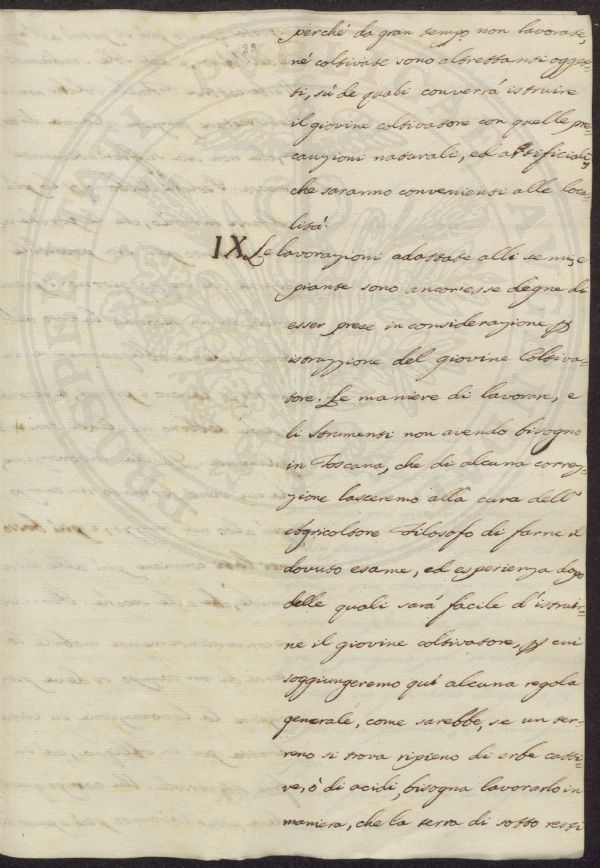 perché da gran tempo non lavorate,
né coltivate sono altrettanti ogget-
ti, sù de quali converrá istruire
il giovine coltivatore con quelle pre
cauzioni naturali, ed artificiali,
che saranno convenienti alle loca
litá.
IX. Le lavorazioni adattate alli semi, e
piante sono ancor esse degne di
esser prese in considerazione ꝑ
istruzzione del giovine Coltiva-
tore. Le maniere di lavorare, e
li strumenti non avendo bisogno
in Toscana, che di alcuna correz-
zione lasceremo alla cura dell'
Agricoltore Filosofo di farne il
dovuto esame, ed esperienza dopo
delle quali sará facile d'istruir-
ne il giovine coltivatore, ꝑ cui
soggiungeremo quí alcuna regola
generale, come sarebbe, se un ter-
reno si trova ripieno di erbe catti-
ve, ó di acidi, bisogna lavorarlo in
maniera, che la terra di sotto resti